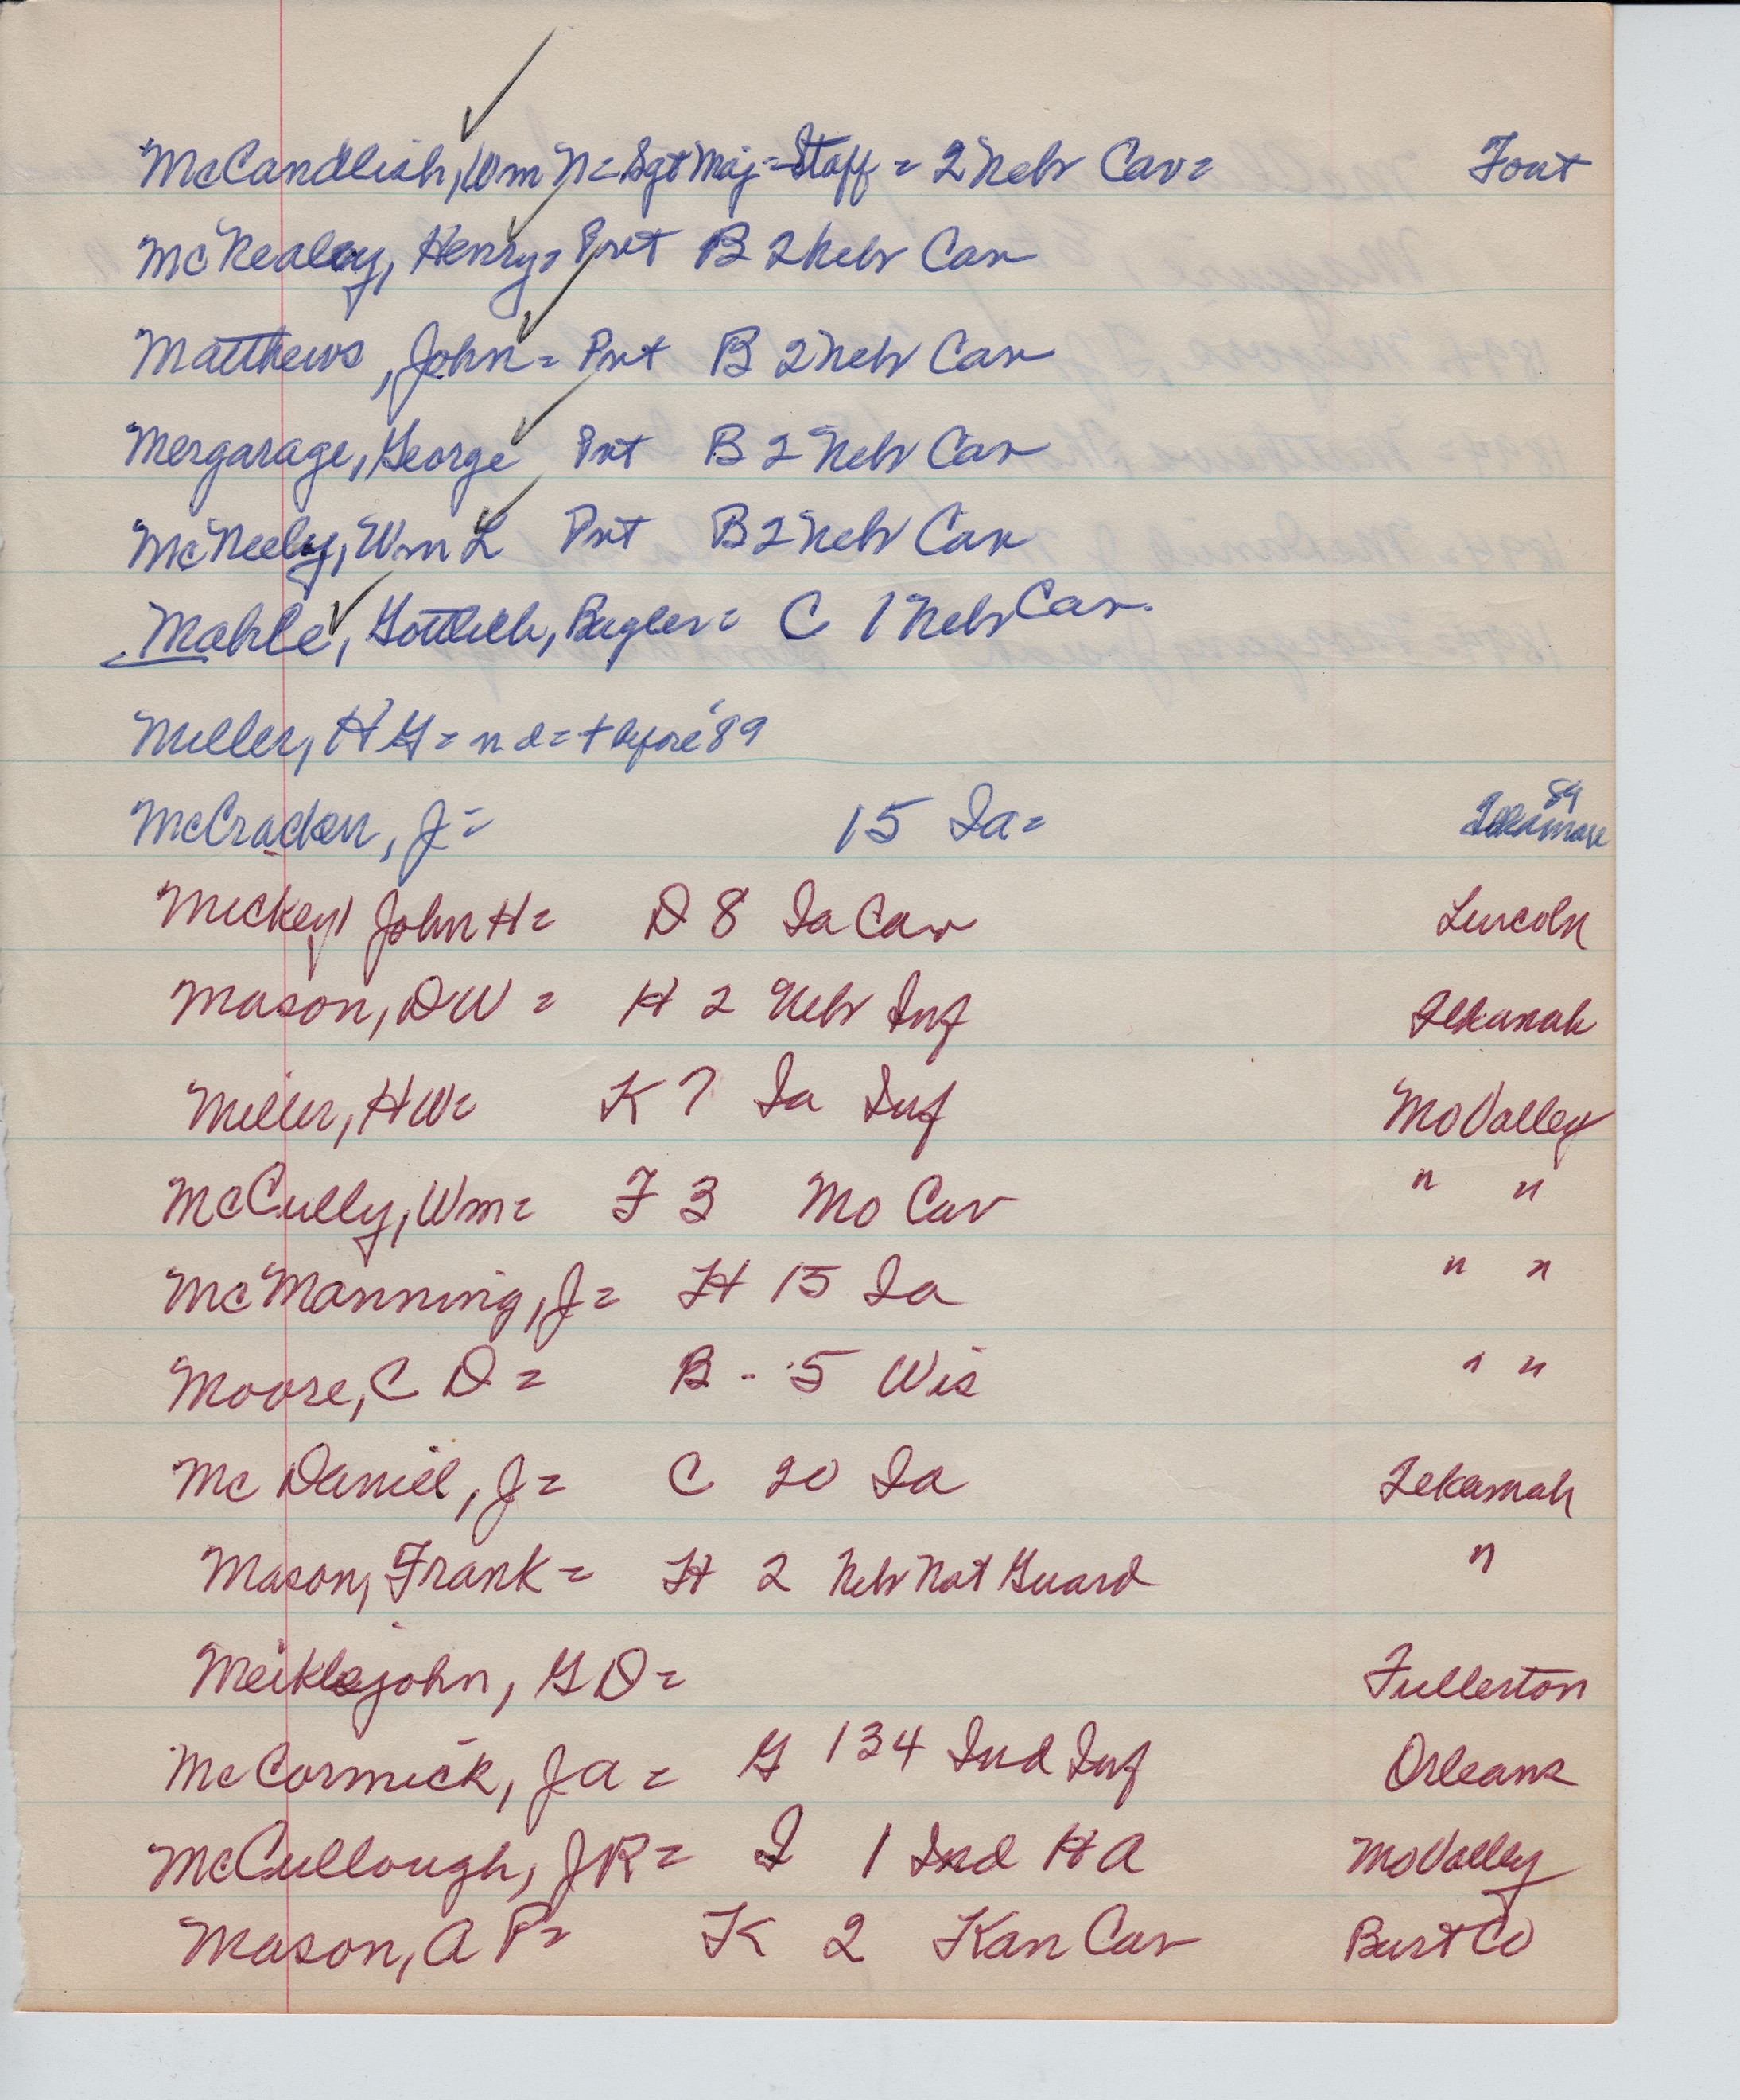 McCandlish, Wm N = Sgt Maj = Staff = 2 Nebr Cav = Font
McNealey, Henry = Pvt B 2 Nebr Cav
Matthews, John = Pvt B 2 Nebr Cav
Mergarage, George Pvt B 2 Nebr Cav
McNeely, Wm L Pvt B 2 Nebr Cav
Mahle, Gottlieb, Bugler = C 1 Nebr Cav.
Miller, H G = n d = + before '89
McCracken, J = 15 Ia = 89
Mickey, John H = D 8 Ia Cav Lincoln
Mason, D W = H 2 Nebr Inf Tekamah
Miller, H W = K 7 Ia Inf Mo Valley
McCully, Wm = F 3 Mo Cav " "
McManning, J = H 15 Ia " "
Moore, C D = B - 5 Wis " "
McDaniel, J = C 20 Ia Tekamah
Mason, Frank = H 2 Nebr Nat Guard "
Meiklejohn, G D = Fullerton
McCormick, J A = G 134 Ind Inf Orleans
McCullough, J R = I 1 Ind H A Mo Valley
Mason, A P = K 2 Kan Cav Burt Co